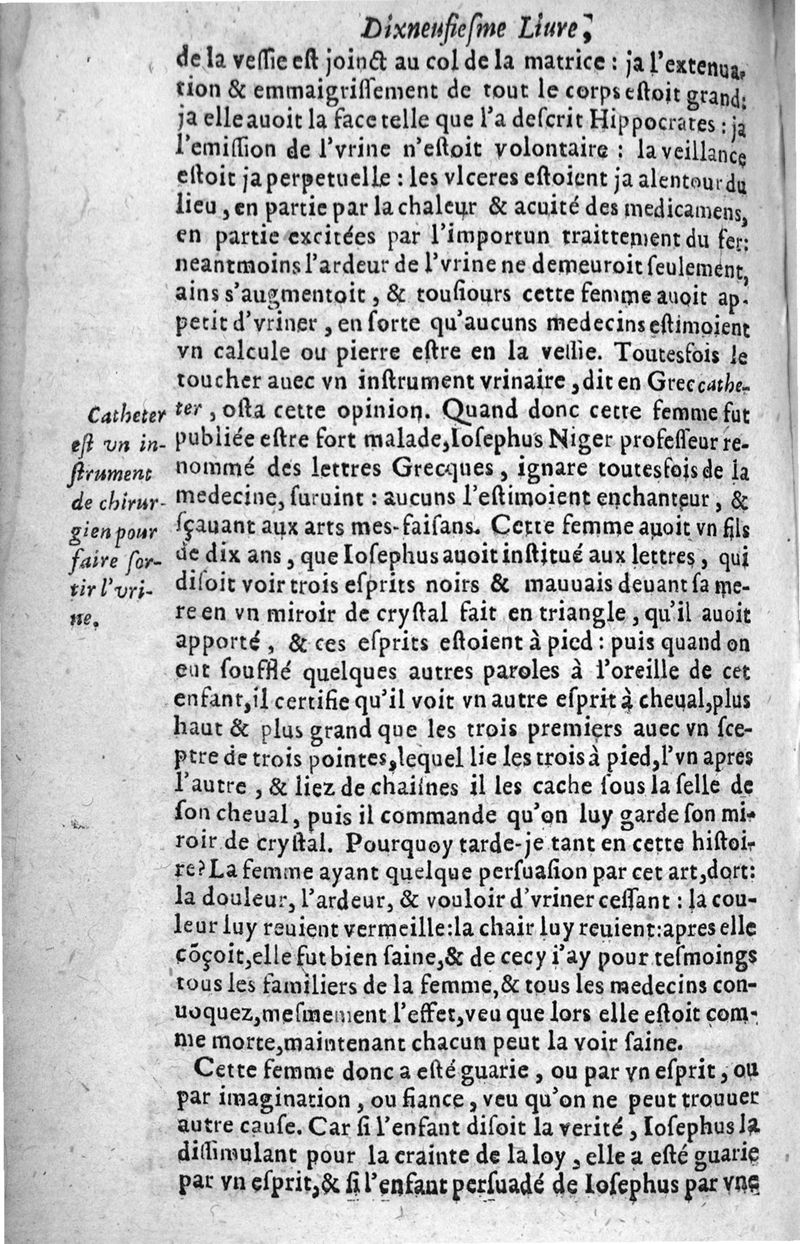 Dixneufieſme Liure,
de la veſſie eſt joinct au col de la matrice : ja l'extenua-
tion & emmaigriſſement de tout le corps eſtoit grand:
ja elle auoit la face telle que l'a deſcrit Hippocrates : ja
l'emiſſion de l'vrine n'eſtoit volontaire : la veillance
eſtoit ja perpetuelle : les vlceres eſtoient ja alentour du
lieu , en partie par la chaleur & acuité des medicamens,
en partie excitées par l'importun traittement du fer:
neantmoins l'ardeur de l'vrine ne demeuroit ſeulement,
ains s'augmentoit , & touſiours cette femme auoit ap-
petit d'vriner , en ſorte qu'aucuns medecins eſtimoient
vn calcule ou pierre eſtre en la veſſie. Toutesfois le
toucher auec vn inſtrument vrinaire , dit en Grec cathe-
ter , oſta cette opinion. Quand donc cette femme fut
publiée eſtre fort malade, Ioſephus Niger profeſſeur re-
nommé des lettres Grecques , ignare toutesfois de la
medecine, ſuruint : aucuns l'eſtimoient enchanteur , &
ſçauant aux arts mes-faiſans. Cette femme auoit vn fils
de dix ans , que Ioſephus auoit inſtitué aux lettres , qui
diſoit voir trois eſprits noirs & mauuais deuant ſa me-
re en vn miroir de cryſtal fait en triangle , qu'il auoit
apporté , & ces eſprits eſtoient à pied : puis quand on
eut ſoufflé quelques autres paroles à l'oreille de cet
enfant, il certifie qu'il voit vn autre eſprit à cheual, plus
haut & plus grand que les trois premiers auec vn ſce-
ptre de trois pointes, lequel lie les trois à pied, l'vn apres
l'autre , & liez de chaiſnes il les cache ſous la ſelle de
ſon cheual , puis il commande qu'on luy garde ſon mi-
roir de cryſtal. Pourquoy tarde-je tant en cette hiſtoi-
re? La femme ayant quelque perſuaſion par cet art, dort:
la douleur, l'ardeur, & vouloir d'vriner ceſſant : la cou-
leur luy reuient vermeille: la chair luy reuient: apres elle
cõçoit, elle fut bien ſaine, & de cecy i'ay pour teſmoings
tous les familiers de la femme, & tous les medecins con-
uoquez, meſmement l'effet, veu que lors elle eſtoit com-
me morte, maintenant chacun peut la voir ſaine.
Cette femme donc a eſté guarie , ou par vn eſprit , ou
par imagination , ou fiance , veu qu'on ne peut trouuer
autre cauſe. Car ſi l'enfant diſoit la verité , Ioſephus la
diſſimulant pour la crainte de la loy , elle a eſté guarie
par vn eſprit, & ſi l'enfant perſuadé de Ioſephus par vne
Catheter
eſt vn in-
ſtrument
de chirur-
gien pour
faire ſor-
tir l'vri-
ne.